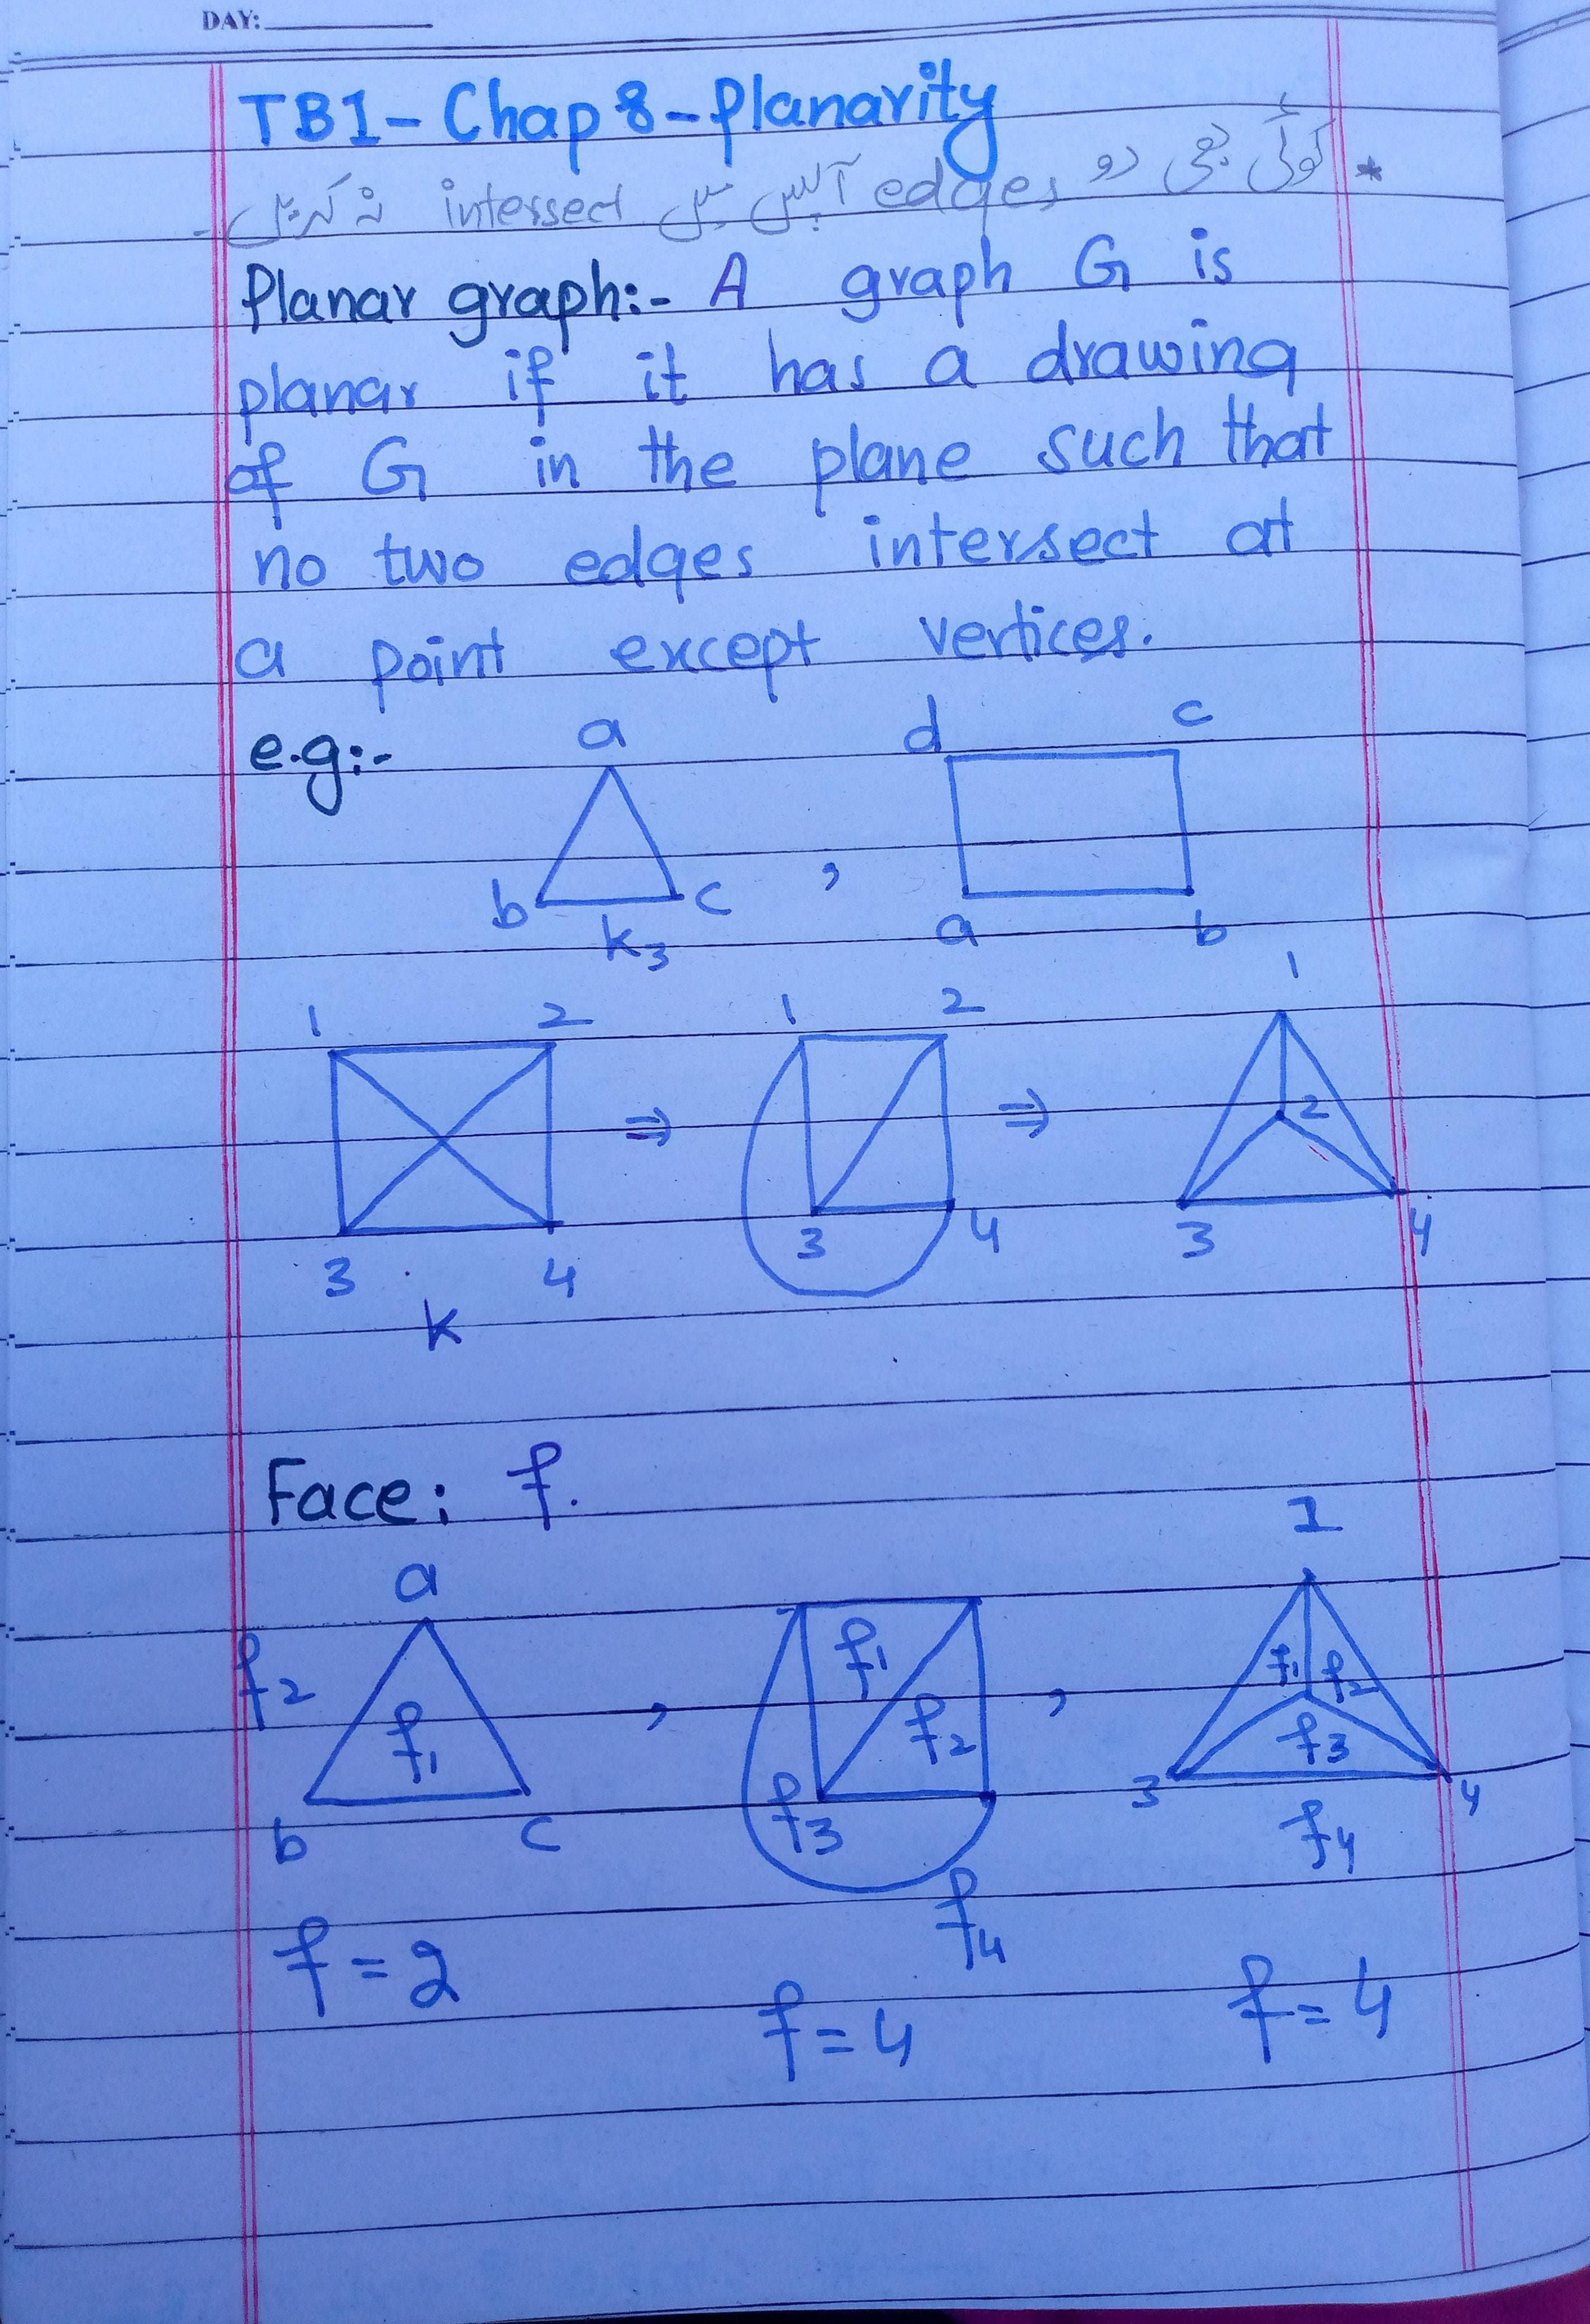 DAY:
TB1- Chap 8- Planarity
* کوئی بھی دو edges آپس میں intersect نہ کریں۔
Planar graph:- A graph G is
planar if it has a drawing
of G in the plane such that
no two edges intersect at
a point except vertices.
e.g:-
a
b c
k3
,
d c
a b
1 2
3 4
k
⇒
1 2
3 4
⇒
1
2
3 4
Face: f.
a
f2
f1
b c
,
f1
f2
f3
f4
,
1
f1 f2
f3
3 4
f4
f=2
f=4
f=4